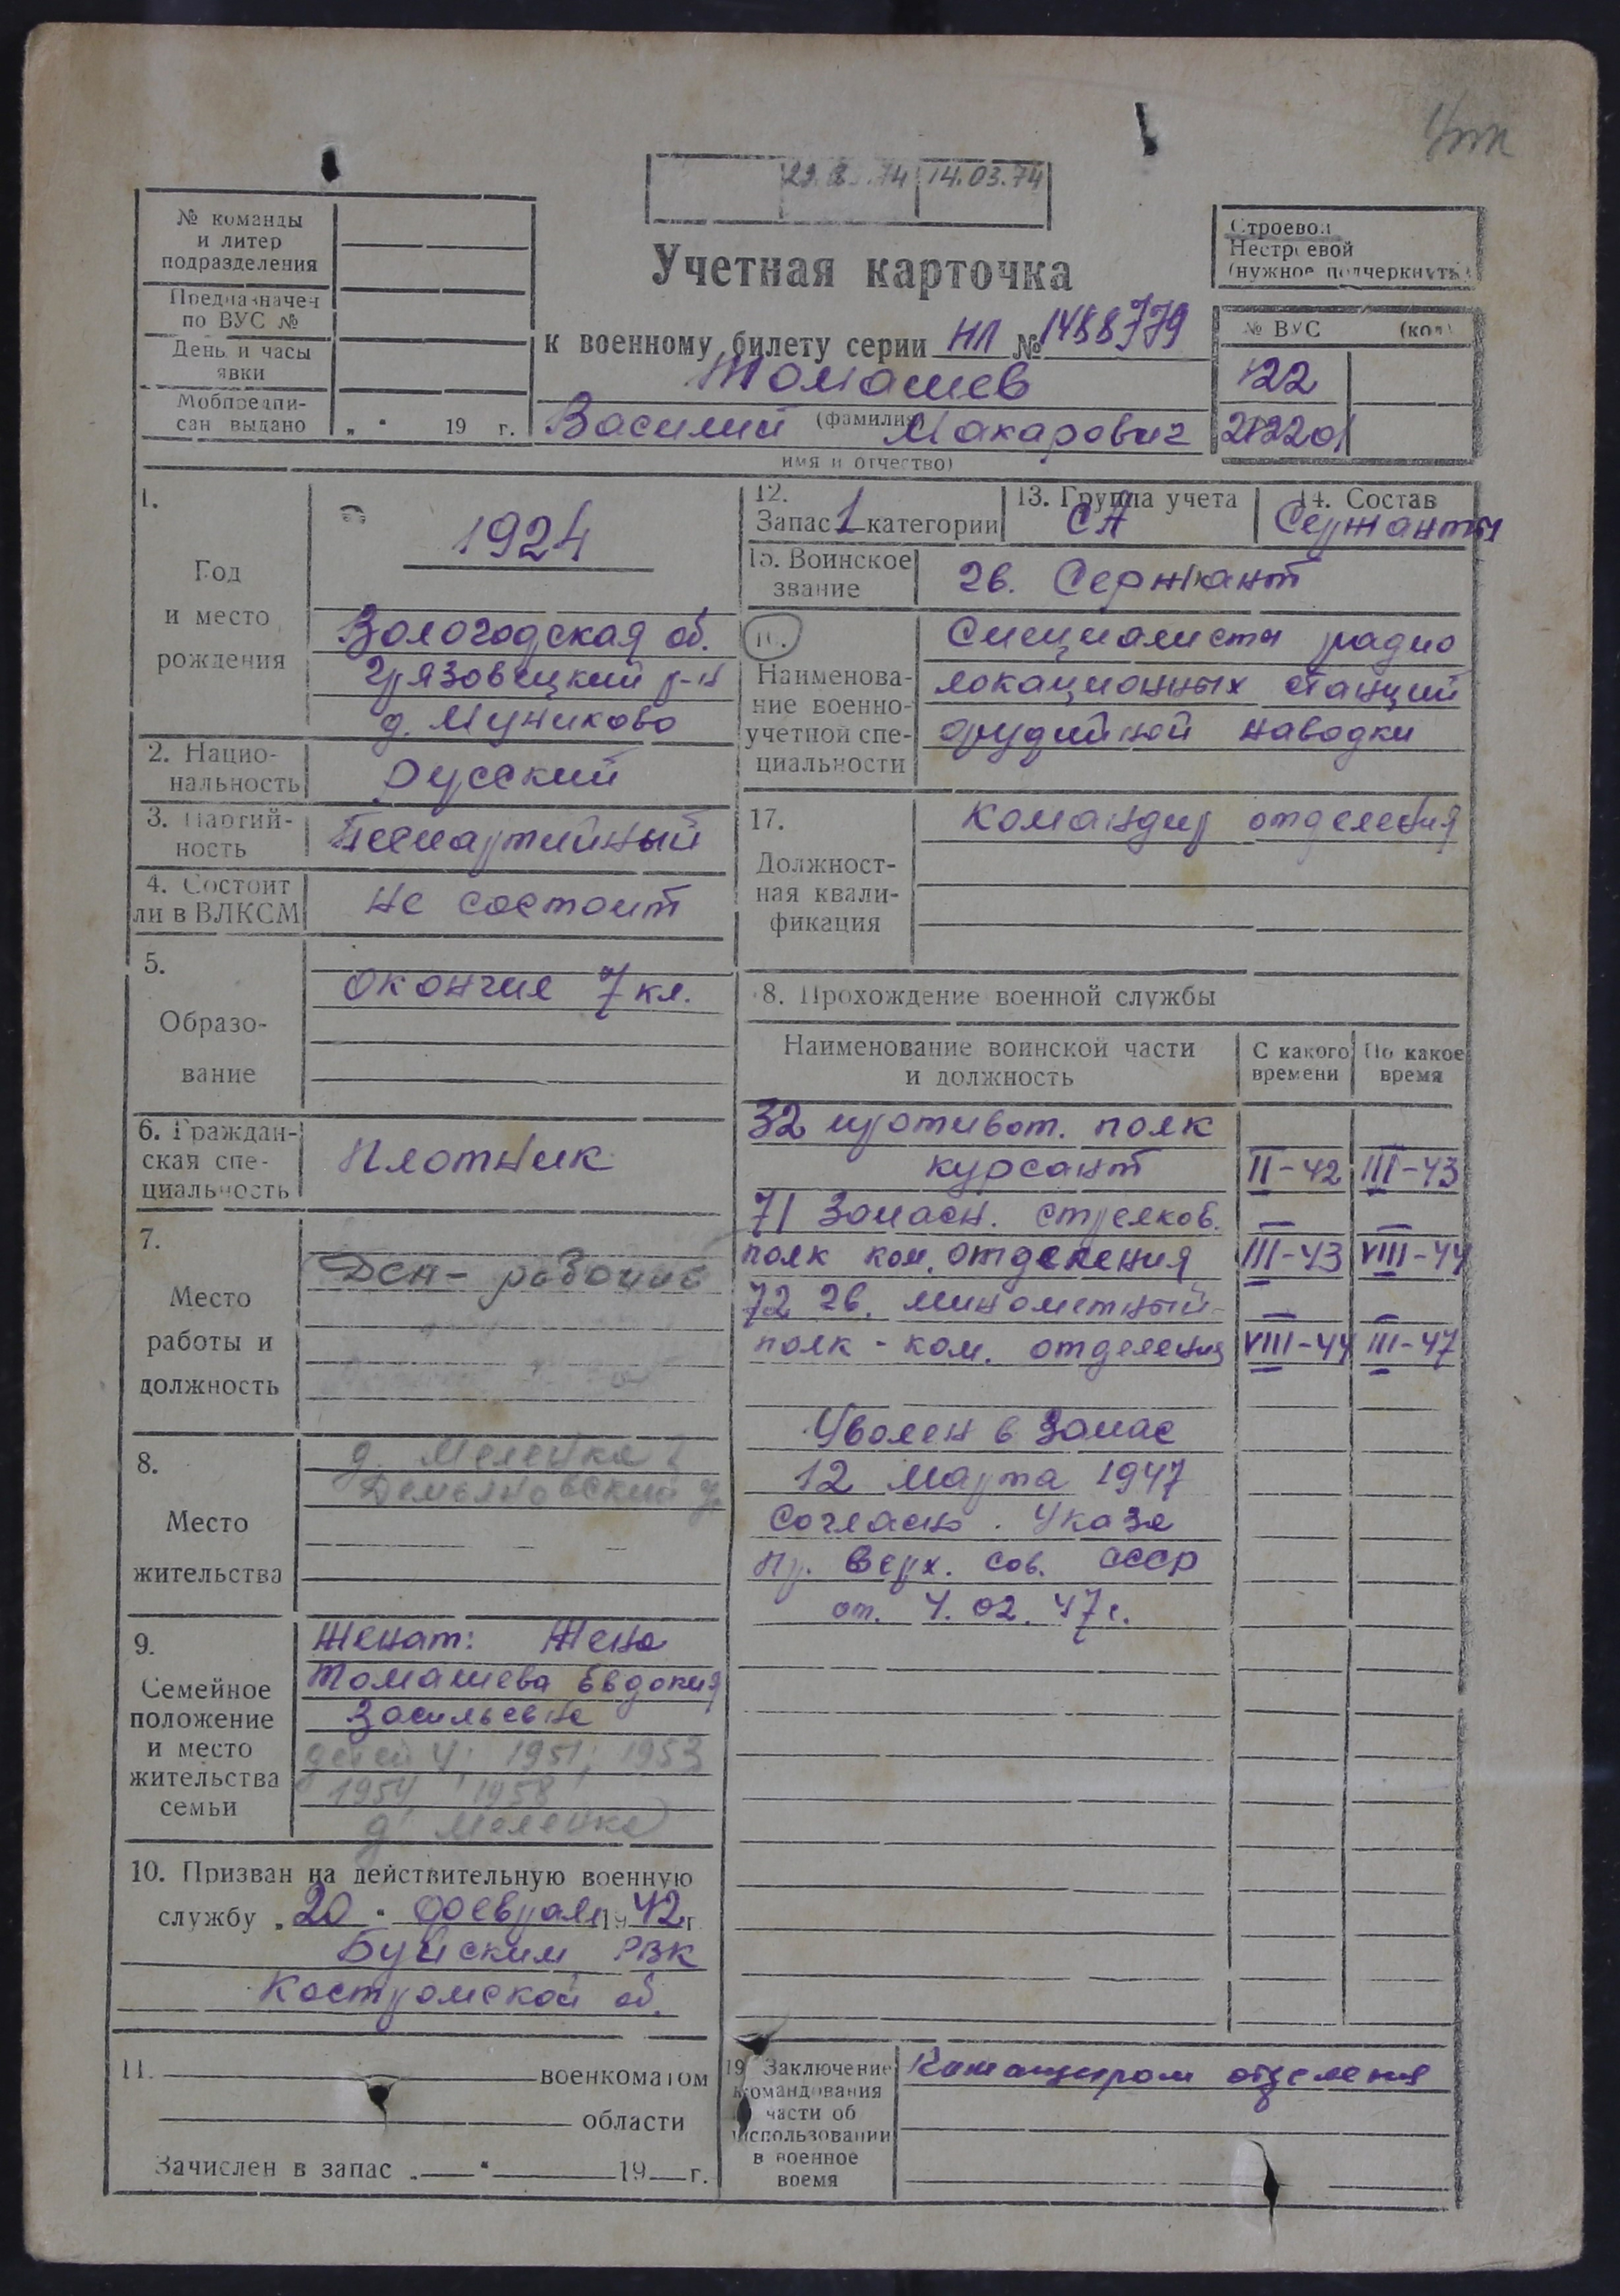 14.03.74
№ команды
и литер
подразделения
Предназначен
по ВУС №
День и часы
явки
Мобпредпи-
сан выдано „ " 19 г.
Учетная карточка
к военному билету серии НЛ № 1488779
Томашев
(фамилия)
Василий Макарович
имя и отчество)
Строевой
Нестроевой
(нужное подчеркнуть)
№ ВУС (код)
122
1.
Год
и место
рождения
1924
Вологодская об.
Грязовецкий р-н
д. Муниково
2. Нацио-
нальность
Русский
3. Партий-
ность
Беспартийный
4. Состоит
ли в ВЛКСМ
не состоит
5.
Образо-
вание
окончил 7 кл.
6. Граждан-
ская спе-
циальность
Плотник
7.
Место
работы и
должность
рабочий
8.
Место
жительства
д. Меленка
Демьяновский
9.
Семейное
положение
и место
жительства
семьи
Женат: Жена
Томашева Евдокия
Васильевна
детей 4; 1951; 1953
1954 1958
д. Меленка
10. Призван на действительную военную
службу „20" февраля 1942 г.
Буйским РВК
Костромской об.
11. военкоматом
области
Зачислен в запас „ " 19 г.
12.
Запас 1 категории
13. Группа учета
СА
14. Состав
Сержанты
15. Воинское
звание
гв. Сержант
Наименова-
ние военно-
учетной спе-
циальности
Специалисты радио
локационных станций
орудийной наводки
17.
Должност-
ная квали-
фикация
Командир отделения
8. Прохождение военной службы
Наименование воинской части
и должность
С какого
времени
По какое
время
32 противот. полк
курсант II-42 III-43
71 Запасн. стрелков.
полк ком. отделения III-43 VIII-44
72 гв. минометный
полк - ком. отделения VIII-44 III-47
Уволен в Запас
12 марта 1947
Согласно Указа
Пр. Верх. Сов. СССР
от. 4. 02. 47 г.
19 Заключение
командования
части об
использовании
в военное
время
Командиром отделения